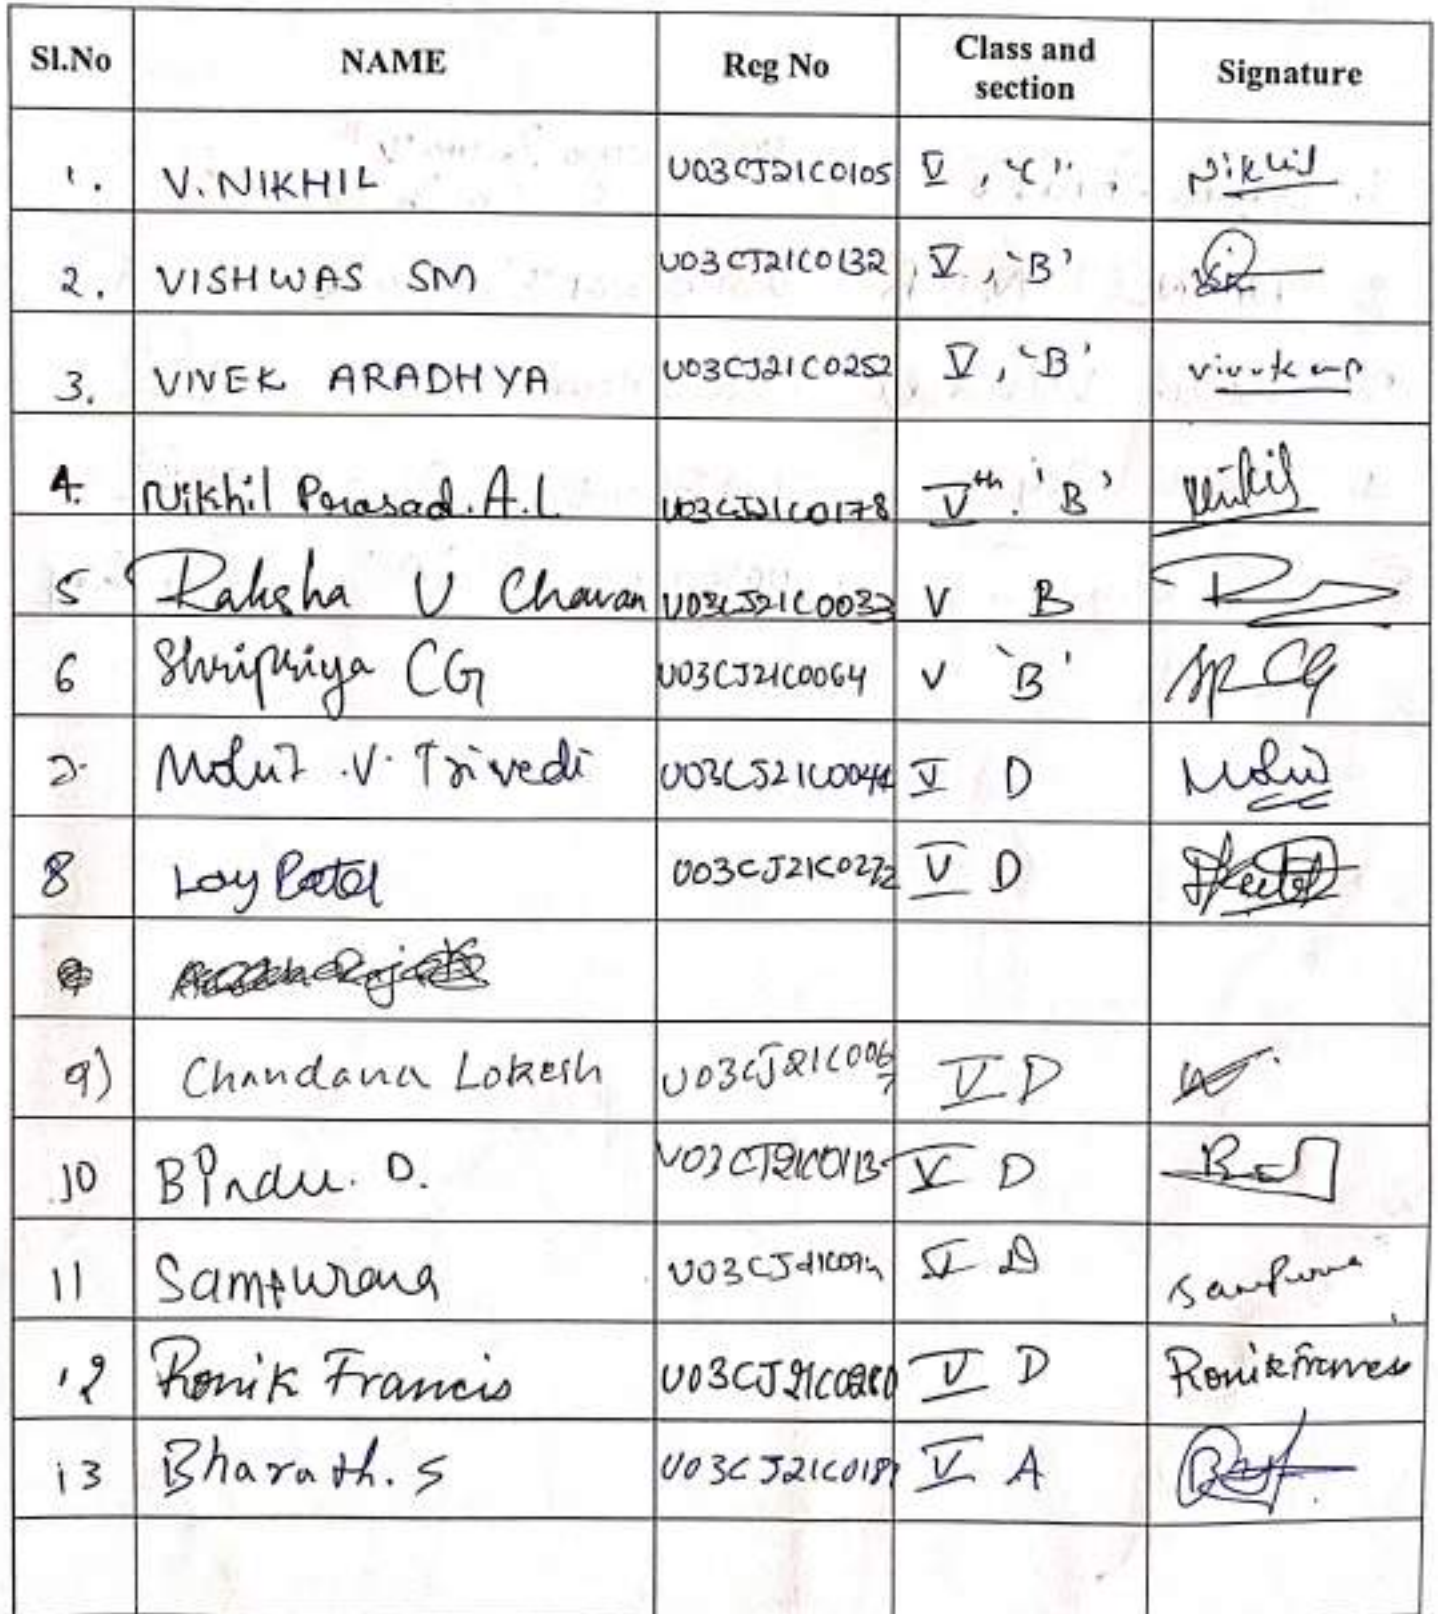 Sl.No NAME Reg No Class and section Signature
1. V.NIKHIL U03CJ21C0105 V, "C", Nikhil
2. VISHWAS SM U03CJ21C0132 V, 'B'
3. VIVEK ARADHYA U03CJ21C0252 V, 'B'
4. Nikhil Prasad.A.L U03CJ21C0178 Vth 'B' Nikhil
5 Raksha U Chavan U03CJ21C0033 V B
6 Shripriya CG U03CJ21C0064 V 'B' SP CG
7. Mohit .V. Trivedi U03CJ21C0044 V D Mohit
8 Loy Patel U03CJ21C0272 V D
9) Chandana Lokesh U03CJ21C0067 V D
10 Bindu. D. U03CJ21C0113 V D
11 Sampurana V D Sampurna
12 Ronik Francis U03CJ21C0280 V D Ronik Francis
13 Bharath. S V A